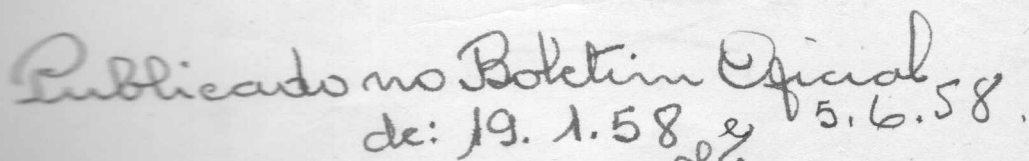 Publicado no Boletim Oficial
de: 19. 1. 58 e 5. 6. 58.